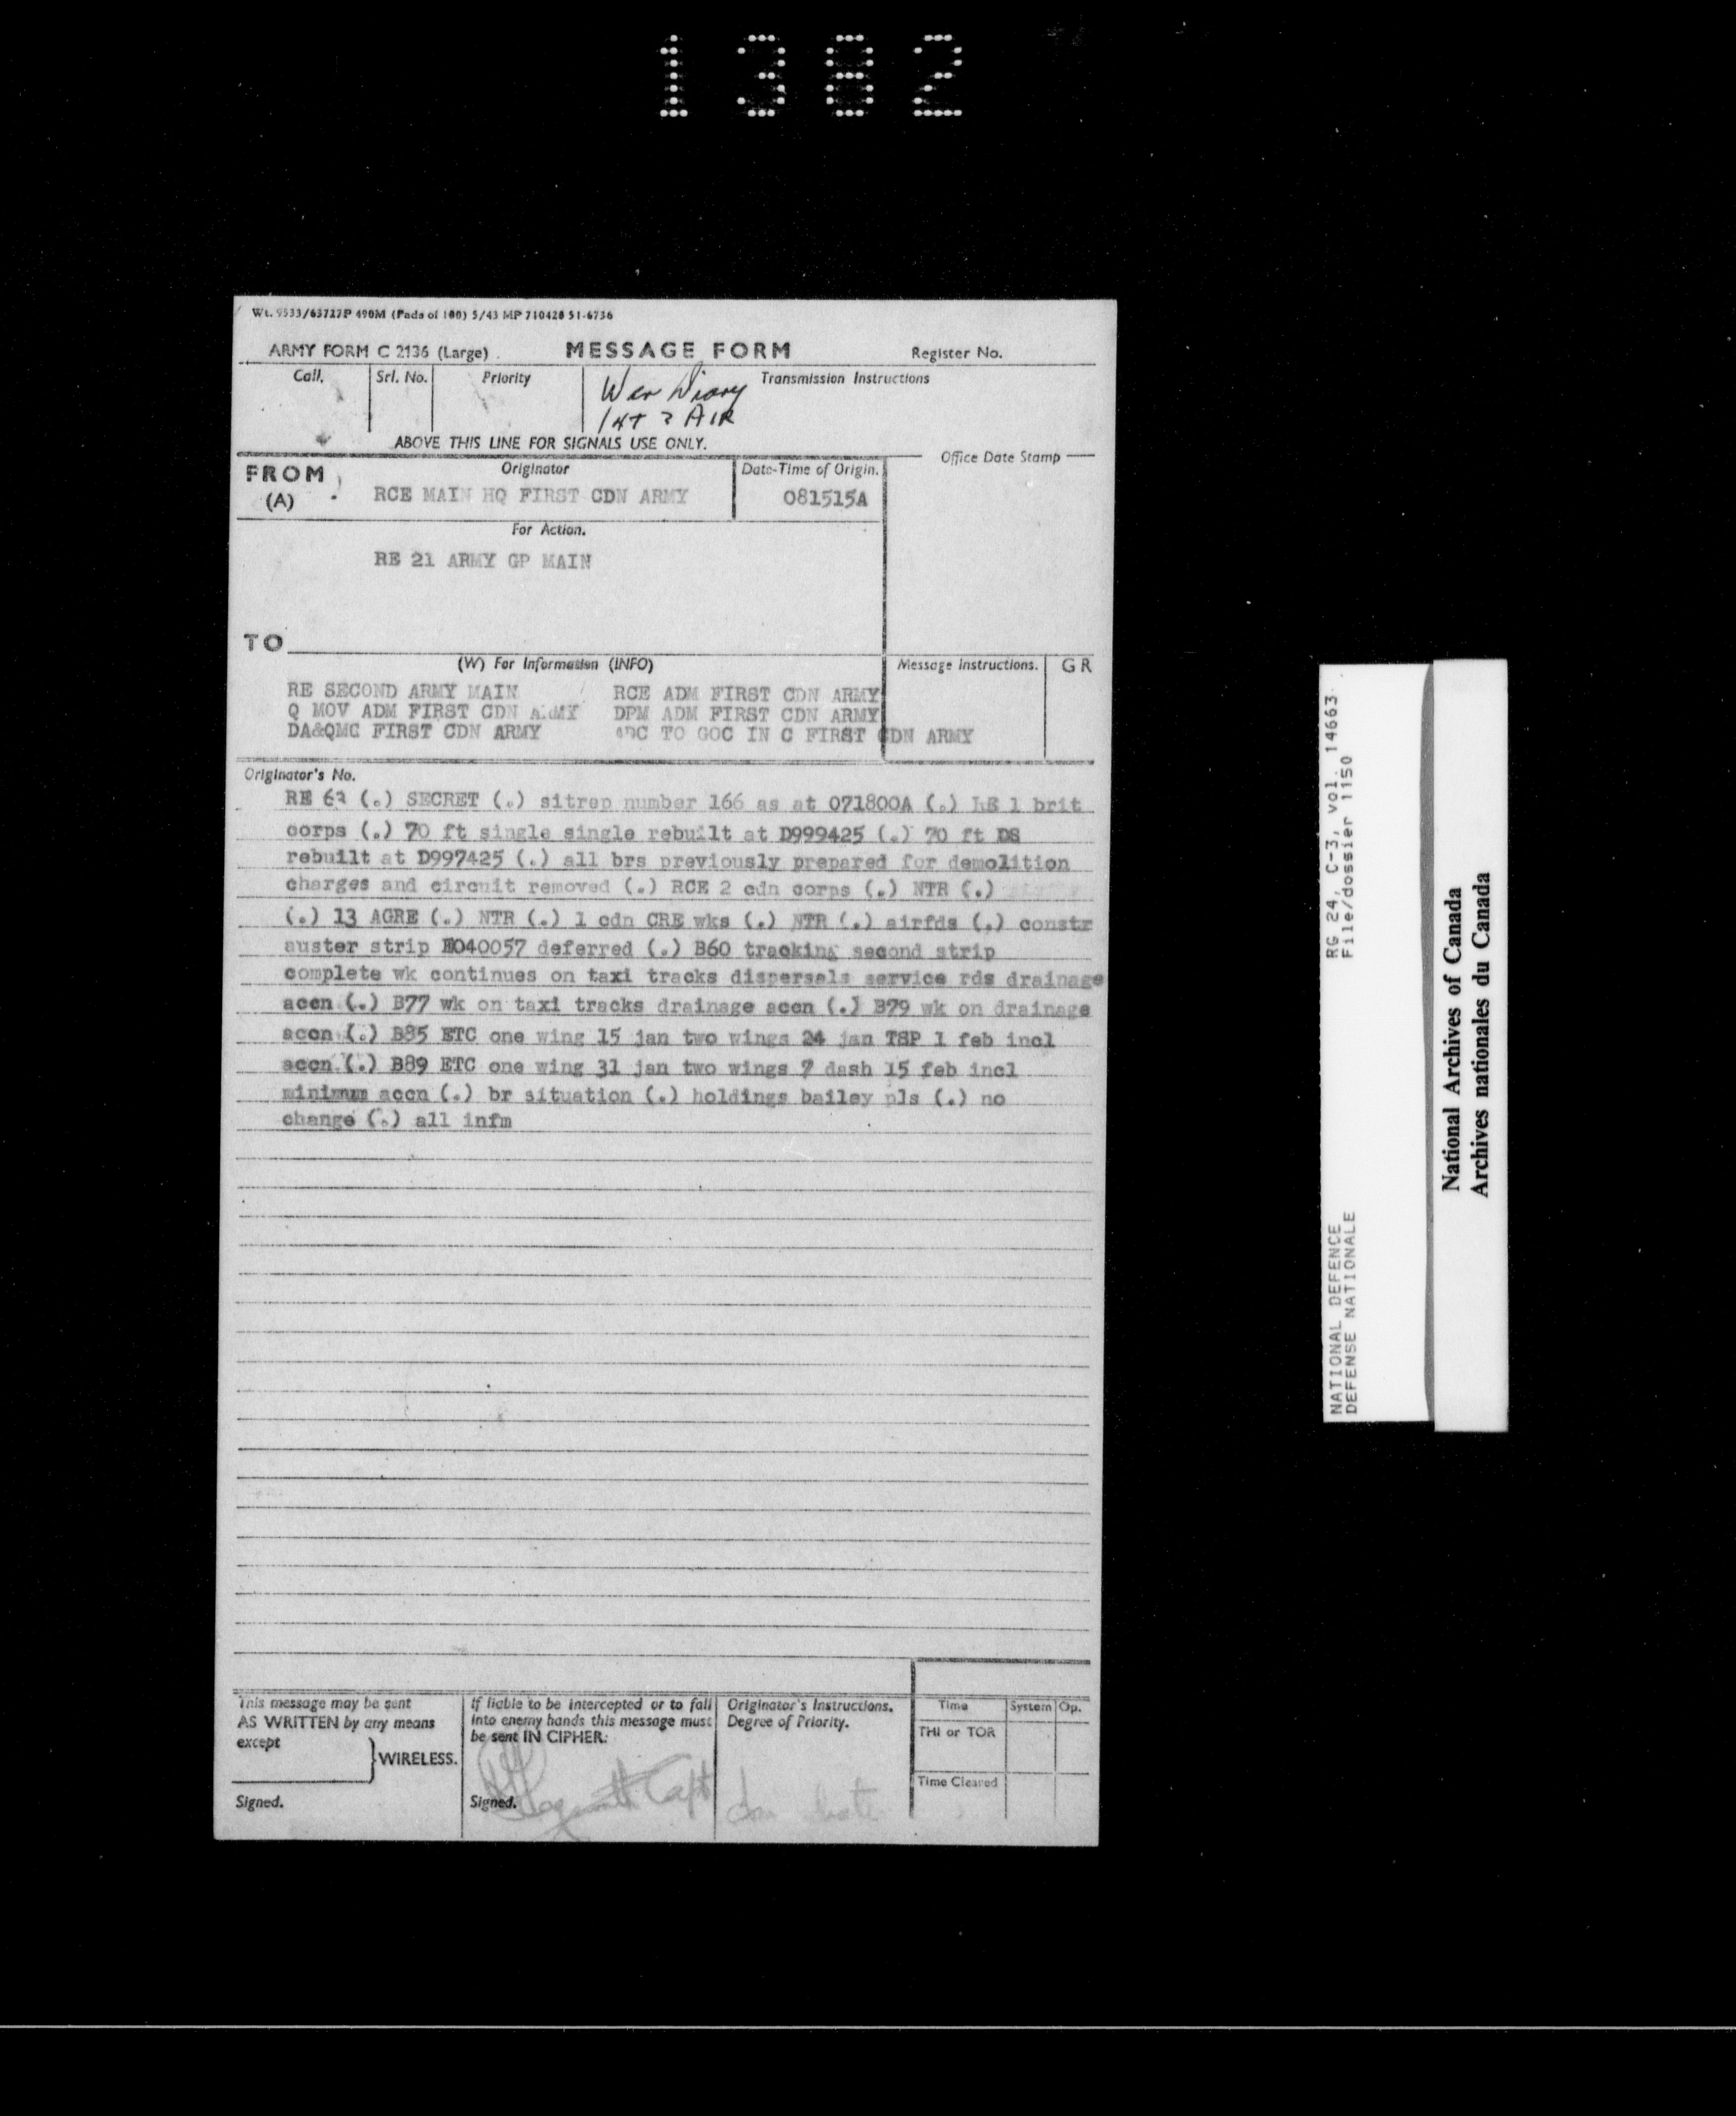 1382
Wt. 9533/63727P 490M (Pads of 100) 5/43 MP 710420 51-6736
ARMY FORM C 2136 (Large) MESSAGE FORM Register No.
Call. Srl. No. Priority Transmission Instructions
War Diary
AIR
ABOVE THIS LINE FOR SIGNALS USE ONLY.
FROM (A) Originator Date-Time of Origin. Office Date Stamp
RCE MAIN HQ FIRST CDN ARMY 081515A
For Action.
RE 21 ARMY GP MAIN
TO
(W) For Information (INFO) Message Instructions. GR
RE SECOND ARMY MAIN RCE ADM FIRST CDN ARMY
Q MOV ADM FIRST CDN ARMY DPM ADM FIRST CDN ARMY
DA&QMG FIRST CDN ARMY ADC TO GOC IN C FIRST CDN ARMY
Originator's No.
RE (.) SECRET (.) sitrep number 166 as at 071800A (.) RE 1 brit
corps (.) 70 ft single single rebuilt at D999425 (.) 70 ft DS
rebuilt at D997425 (.) all brs previously prepared for demolition
charges and circuit removed (.) RCE 2 cdn corps (.) NTR (.)
(.) 13 AGRE (.) NTR (.) 1 cdn CRE wks (.) NTR (.) airfds (.) constr
auster strip E040057 deferred (.) B60 tracking second strip
complete wk continues on taxi tracks dispersals service rds drainage
accn (.) B77 wk on taxi tracks drainage accn (.) B79 wk on drainage
accn (.) B85 ETC one wing 15 jan two wings 24 jan TSP 1 feb incl
accn (.) B89 ETC one wing 31 jan two wings 7 dash 15 feb incl
minimum accn (.) br situation (.) holdings bailey pls (.) no
change (.) all infm
This message may be sent AS WRITTEN by any means except WIRELESS.
Signed.
If liable to be intercepted or to fall into enemy hands this message must be sent IN CIPHER.
Signed. Capt
Originator's Instructions. Degree of Priority.
Time System Op.
THI or TOR
Time Cleared
RG 24, C-3, vol. 14663
File/dossier 1150
NATIONAL DEFENCE
DEFENSE NATIONALE
National Archives of Canada
Archives nationales du Canada